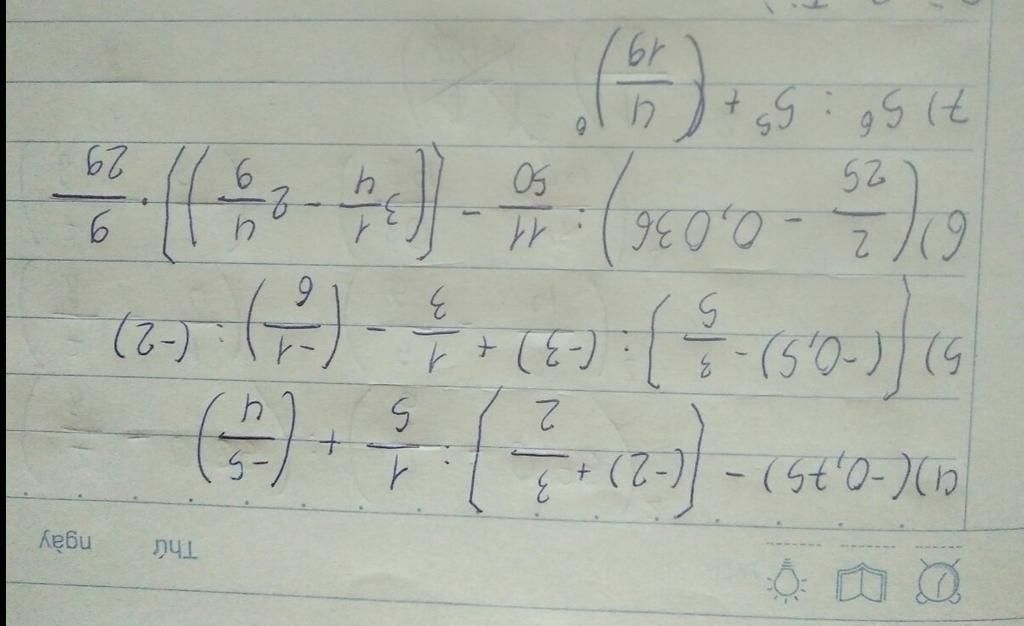 Thứ ngày
4) (-0,75) - [(-2) + 3/2] : 1/5 + (-5/4)
5) [(-0,5) - 3/5] : (-3) + 1/3 - (-1/6) : (-2)
6) (2/25 - 0,036) : 11/50 - [(3 1/4 - 2 4/9)] . 9/29
7) 5⁶ : 5⁵ + (4/19)⁰